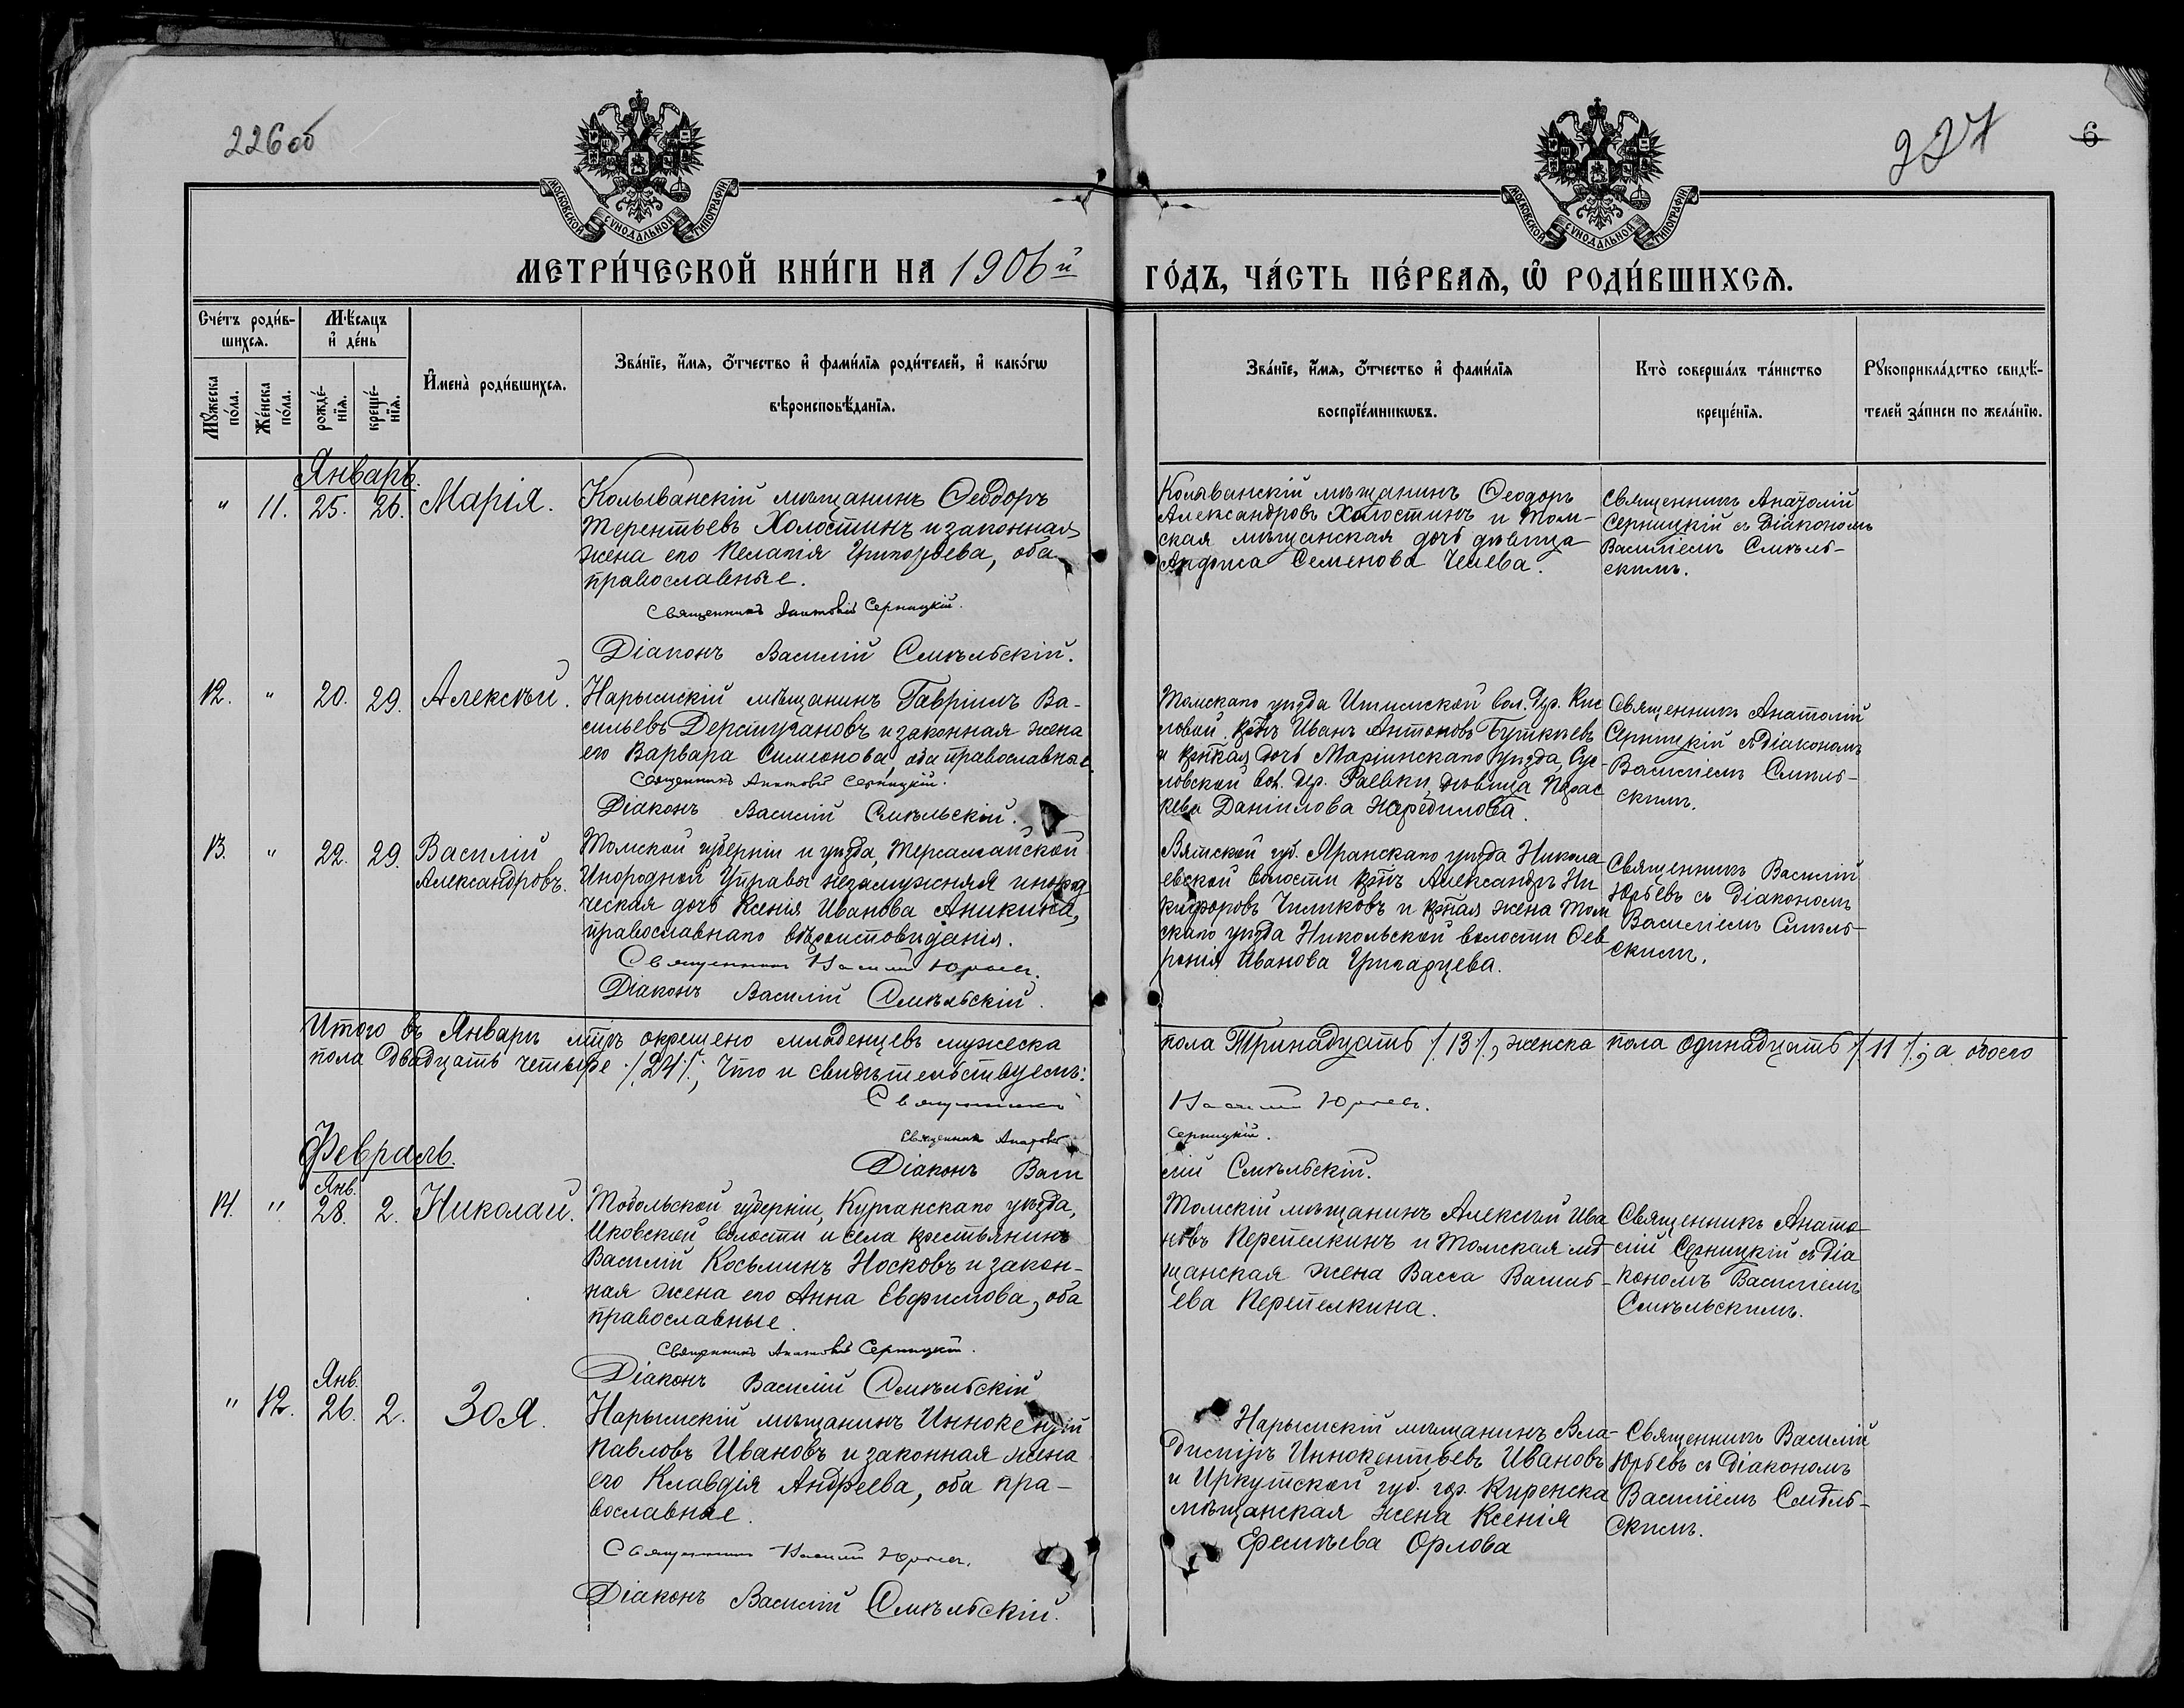 226 об
227
6
МОСКОВСКОЙ СѴНОДАЛЬНОЙ ТИПОГРАФІИ
МОСКОВСКОЙ СѴНОДАЛЬНОЙ ТИПОГРАФІИ
МЕТРИ́ЧЕСКОЙ КНИ́ГИ НА 1906й
ГО́ДЪ, ЧА́СТЬ ПЕ́РВАѦ, Ѡ҆ РОДИ́ВШИХСѦ.
Сче́тъ роди́в-
шихсѧ.
Мꙋ́жеска по́ла.
Же́нска по́ла.
Мѣ́сѧцъ
и҆ де́нь
рожде́-нїѧ.
креще́-нїѧ.
И҆мена̀ роди́вшихсѧ.
Зва́нїе, и҆́мѧ, ѻ҆́тчество и҆ фами́лїѧ роди́телей, и҆ како́гѡ
вѣроисповѣ́данїѧ.
Зва́нїе, и҆́мѧ, ѻ҆́тчество и҆ фами́лїѧ
воспрїе́мникѡвъ.
Кто̀ соверша́лъ та́инство
креще́нїѧ.
Рꙋкоприкла́дство свидѣ́-
телей за́писи по жела́нїю.
Январь.
" 11. 25. 26. Марія.
Колыванскій мѣщанинъ Ѳеодоръ
Терентьевъ Холостинъ и законная
жена его Пелагія Григорьева, оба
православные.
Священникъ Анатолій Серницкій.
Діаконъ Василій Смѣльскій.
Колыванскій мѣщанинъ Ѳеодоръ
Александровъ Холостинъ и Том-
ская мѣщанская дочь дѣвица
Анфиса Семенова
Священникъ Анатолій
Серницкій съ Діакономъ
Василіемъ Смѣль-
скимъ.
12. " 20. 29. Алексѣй.
Нарымскій мѣщанинъ Гавріилъ Ва-
сильевъ и законная жена
его Варвара Симеонова, оба православные.
Священникъ Анатолій Серницкій.
Діаконъ Василій Смѣльскій.
Томскаго уѣзда вол. Дер. Кис
ловой. крнъ Иванъ Антоновъ
и крнкая дочь Маріинскаго уѣзда, Сус-
ловской вол. Дер. дѣвица Парас
кева Даніилова
Священникъ Анатолій
Серницкій съ Діакономъ
Василіемъ Смѣль-
скимъ.
13. " 22. 29. Василій
Александровъ.
Томской губерніи и уѣзда,
Инородной Управы незамужняя инород
ческая дочь Ксенія Иванова Аникина,
православнаго вѣроисповѣданія.
Священникъ Василій Юрьевъ.
Діаконъ Василій Смѣльскій.
Вятской губ. Яранскаго уѣзда Никола-
евской волости крнъ Александръ Ни-
кифоровъ Чиликовъ и крная жена Том
скаго уѣзда Никольской волости Фев
ронія Иванова
Священникъ Василій
Юрьевъ съ Діакономъ
Василіемъ Смѣль-
скимъ.
Итого въ Январѣ мцѣ окрещено младенцевъ мужеска
пола Тринадцать /13/, женска пола одинадцать /11/; а обоего
пола двадцать четыре /24/; Что и свидѣтельствуемъ:
Священникъ Василій Юрьевъ.
Священникъ Анатолій Серницкій.
Діаконъ Василій Смѣльскій.
Февраль.
Янв.
14. " 28. 2. Николай.
Тобольской губерніи, Курганскаго уѣзда,
Иковской волости и села крестьянинъ
Василій Косьминъ Носковъ и закон-
ная жена его Анна Евфимова, оба
православные.
Священникъ Анатолій Серницкій.
Діаконъ Василій Смѣльскій
Томскій мѣщанинъ Алексѣй Ива
новъ Перепелкинъ и Томская мѣ-
щанская жена Васса Василь-
ева Перепелкина.
Священникъ Анато-
лій Серницкій съ Діа
кономъ Василіемъ
Смѣльскимъ.
Янв.
" 12. 26. 2. Зоя.
Нарымскій мѣщанинъ Иннокентій
Павловъ Ивановъ и законная жена
его Клавдія Андреева, оба пра-
вославные.
Священникъ Василій Юрьевъ.
Діаконъ Василій Смѣльскій.
Нарымскій мѣщанинъ Вла-
диміръ Иннокентьевъ Ивановъ
и Иркутской губ. гор. Киренска
мѣщанская жена Ксенія
Еремѣева Орлова
Священникъ Василій
Юрьевъ съ Діакономъ
Василіемъ Смѣль-
скимъ.